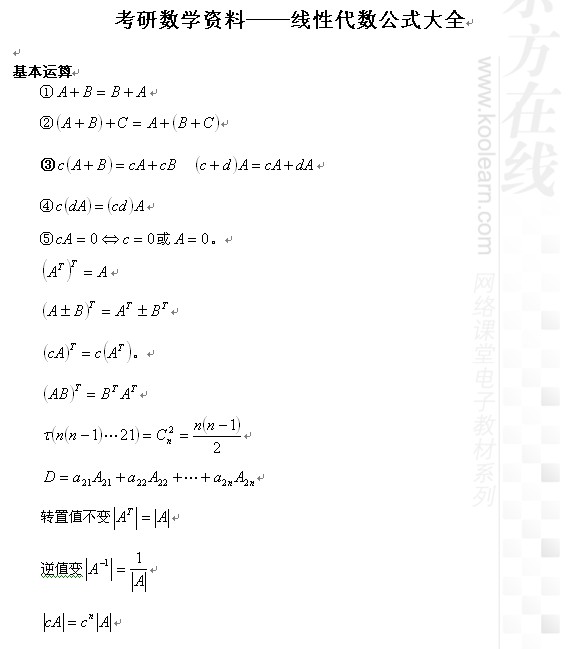 考研数学资料——线性代数公式大全
基本运算
①A+B=B+A
②(A+B)+C=A+(B+C)
③c(A+B)=cA+cB (c+d)A=cA+dA
④c(dA)=(cd)A
⑤cA=0⇔c=0或A=0。
(A^T)^T=A
(A±B)^T=A^T±B^T
(cA)^T=c(A^T)。
(AB)^T=B^T A^T
τ(n(n−1)⋯21)=C_n^2=n(n−1)/2
D=a_21A_21+a_22A_22+⋯+a_2nA_2n
转置值不变|A^T|=|A|
逆值变|A^−1|=1/|A|
|cA|=c^n|A|
东方在线
www.koolearn.com
网络课堂电子教材系列